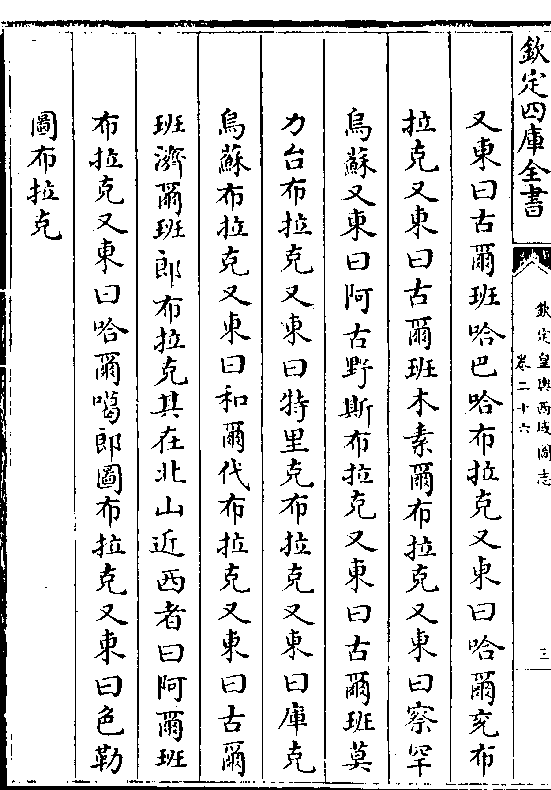 欽定四庫全書
欽定皇輿西域圖志
卷二十六
三
又東曰古爾班哈巴哈布拉克又東曰哈爾兖布
拉克又東曰古爾班木素爾布拉克又東曰察罕
烏蘇又東曰阿古野斯布拉克又東曰古爾班莫
力台布拉克又東曰特里克布拉克又東曰庫克
烏蘇布拉克又東曰和爾代布拉克又東曰古爾
班濟爾班郎布拉克其在北山近西者曰阿爾班
布拉克又東曰哈爾噶郎圖布拉克又東曰色勒
圖布拉克